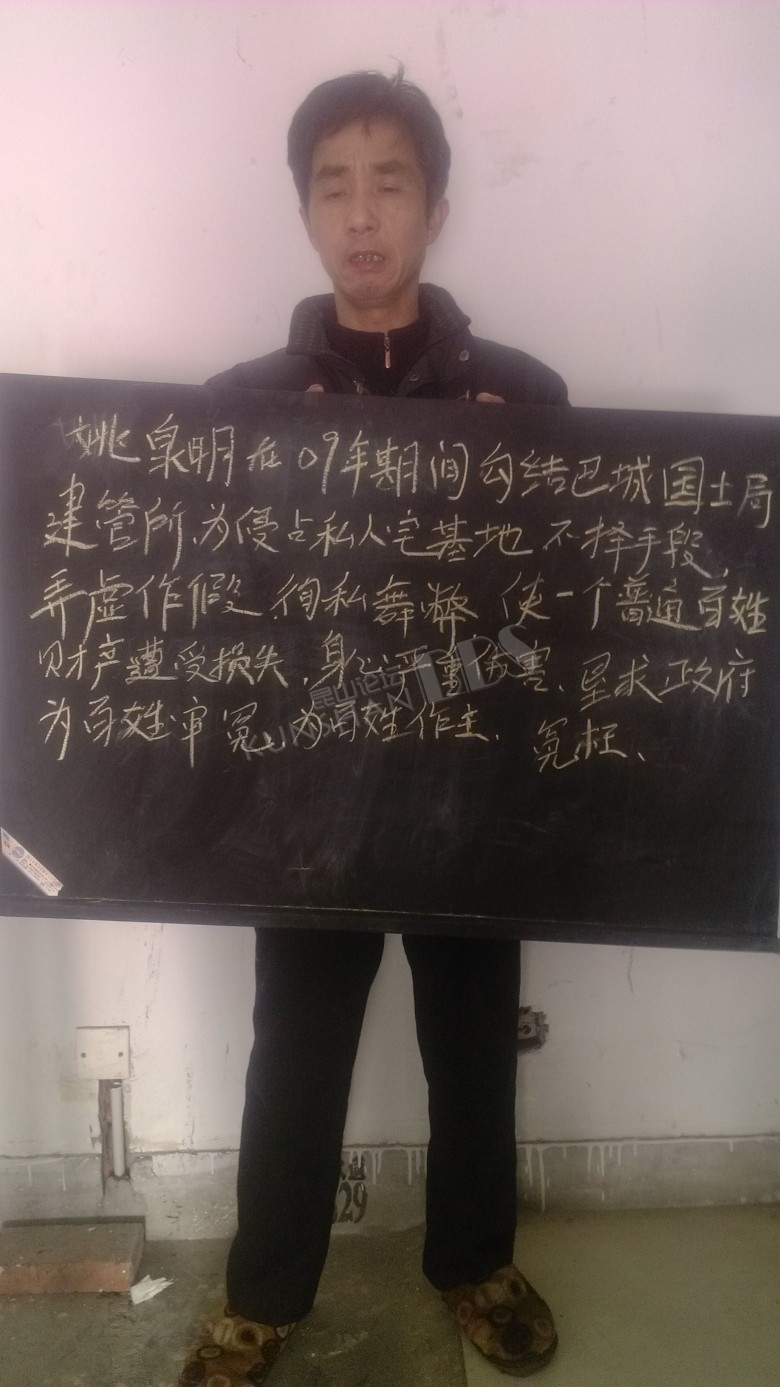 姚泉明在09年期间勾结巴城国土局
建管所,为侵占私人宅基地不择手段,
弄虚作假,徇私舞弊 使一个普通百姓
财产遭受损失,身心严重伤害、垦求政府
为百姓审冤,为百姓作主. 冤枉、
昆山论坛BBS
KUNSHAN
29